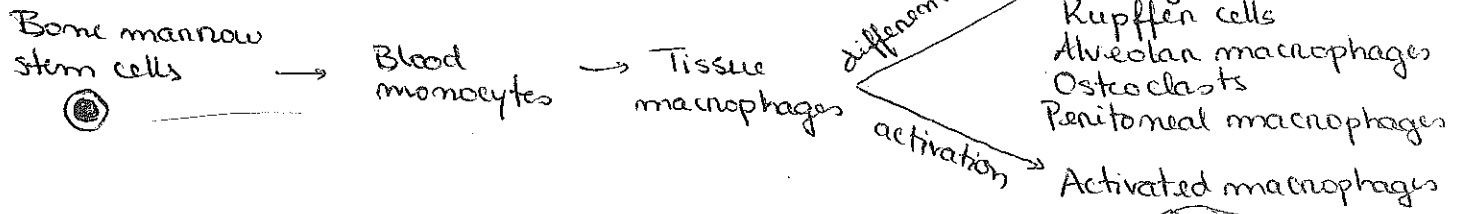 Bone marrow
stem cells
→ Blood
monocytes
→ Tissue
macrophages
Kupffer cells
Alveolar macrophages
Osteoclasts
Peritoneal macrophages
activation
Activated macrophages